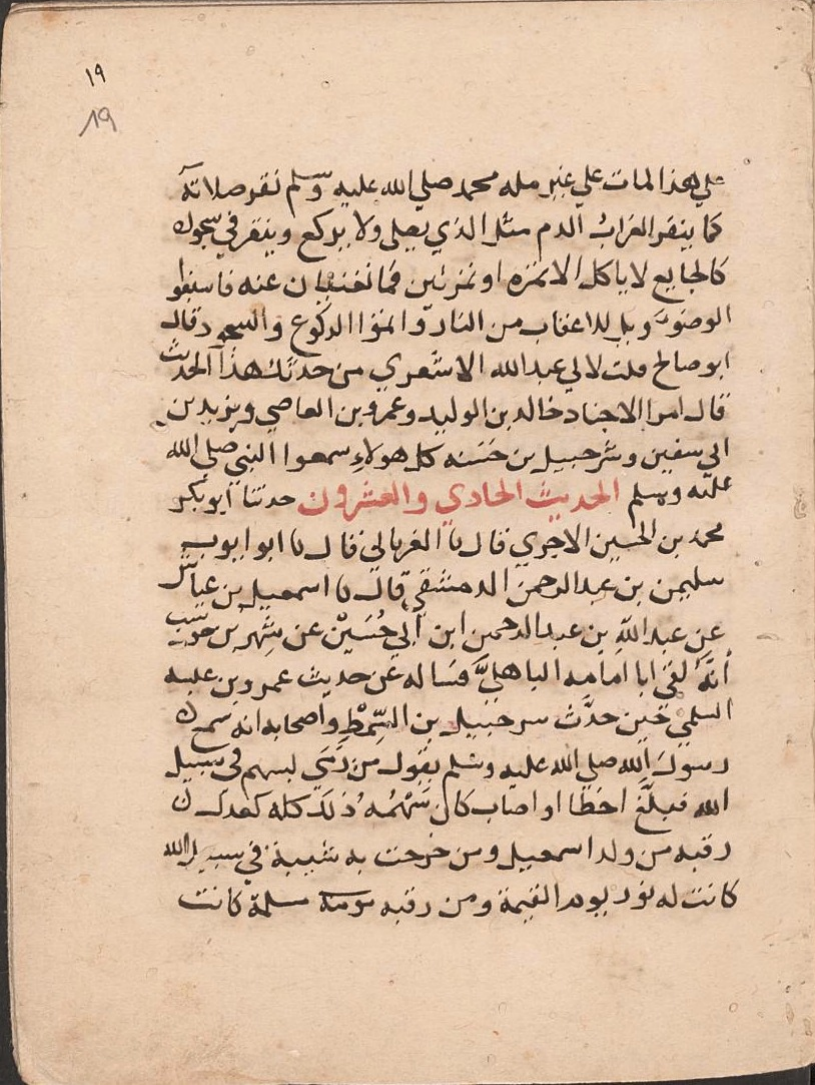 ١٩
19
علي هذا لمات علي غير مله محمد صلي الله عليه وسلم نقر صلاته
كما ينقر الغراب الدم مثل الذي يصلى ولا يركع وينقر في سجوده
كالجايع لا ياكل الا تمره او تمرتين فما تغنيان عنه فاسبغو
الوضوء ويل للاعقاب من النار واتموا الركوع والسجود قال
ابو صالح قلت لابي عبد الله الاشعري من حدثك هذا الحديث
قال امرا الاجناد خالد بن الوليد وعمرو بن العاصي ويزيد بن
ابي سفين وشرحبيل بن حسنه كل هولاء سمعوا النبي صلي الله
عليه وسلم الحديث الحادي والعشرون حدثنا ابو بكر
محمد بن الحسين الاجري قال نا الفريابي قال نا ابو ايوب
سليمن بن عبد الرحمن الدمشقي قال نا اسمعيل بن عياش
عن عبد الله بن عبد الرحمن ابن ابي حُسَيْن عن شهر بن حوشب
أنّه لقي ابا امامه الباهليّ فساله عن حديث عمرو بن عبسه
السلمي حين حدَّث سرحبيل بن السِّمْطِ واصحابه انه سمع
رسول الله صلي الله عليه وسلم يقول من رَمَي بسهم في سبيل
الله فبلَّغ اخطا او اصاب كان سَهْمُه ذلك كله كعدل
رقبه من ولد اسمعيل ومن خرجت به شيبة في سبيل الله
كانت له نور يوم القيمة ومن رقبه مومنه مسلمة كانت